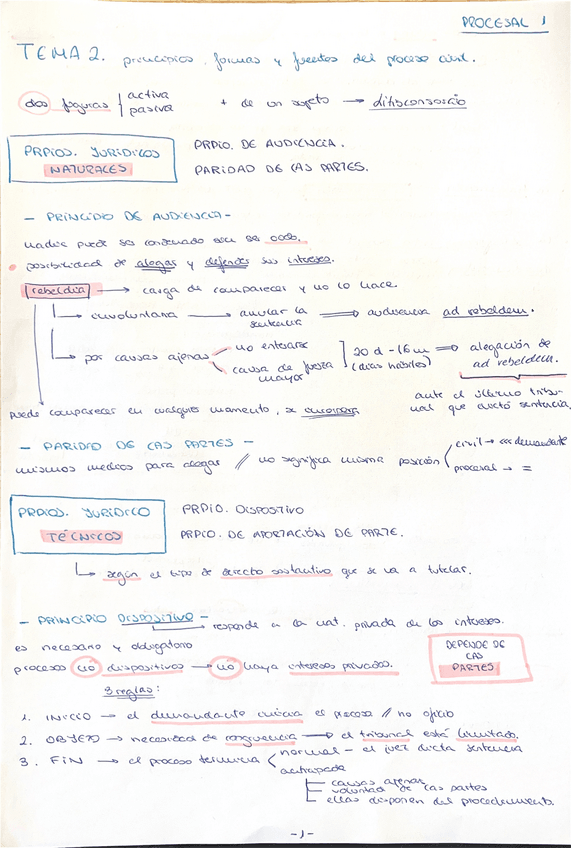 PROCESAL 1
TEMA 2. principios, formas y fuentes del proceso civil.
dos figuras activa
pasiva
+ de un sujeto → litisconsorcio
PRPIOS. JURIDICOS
NATURALES
PRPIO. DE AUDIENCIA.
PARIDAD DE LAS PARTES.
- PRINCIPIO DE AUDIENCIA -
nadie puede ser condenado sin ser oído.
posibilidad de alegar y defender sus intereses.
rebeldía → carga de comparecer y no lo hace.
involuntaria → anular la sentencia ⇒ audiencia ad rebeldem.
por causas ajenas no enterarse
causa de fuerza mayor
20 d - 16 m
(días hábiles)
⇒ alegación de
ad rebeldem.
ante el último tribu-
nal que dictó sentencia.
puede comparecer en cualquier momento, se
- PARIDAD DE LAS PARTES -
mismos medios para alegar // no significa misma posición civil →
procesal → =
PRPIOS. JURIDICO
TÉCNICOS
PRPIO. DISPOSTIVO
PRPIO. DE APORTACIÓN DE PARTE.
según el tipo de derecho sustantivo que se va a tutelar.
- PRINCIPIO Dispositivo -
responde a la nat. privada de los intereses.
es necesario y obligatorio
procesos no dispositivos → no haya intereses privados.
DEPENDE DE
LAS
PARTES
3 reglas:
1. INICIO → el demandante inicia el proceso // no oficio
2. OBJETO → necesidad de congruencia → el tribunal está limitado.
3. FIN → el proceso termina normal - el juez dicta sentencia
anticipada
causas ajenas
voluntad de las partes
ellas disponen del procedimiento.
-1-